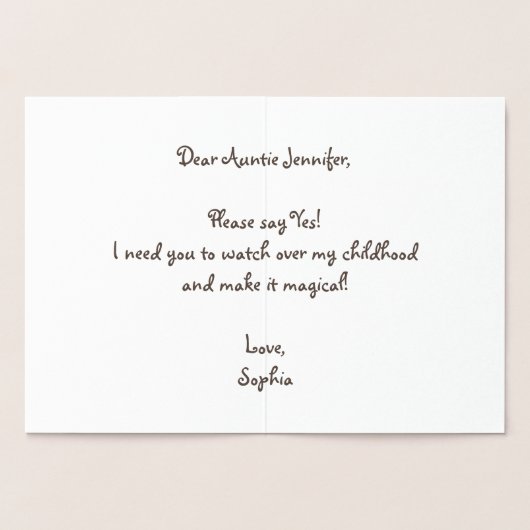 Dear Auntie Jennifer,
Please say Yes!
I need you to watch over my childhood
and make it magical!
Love,
Sophia